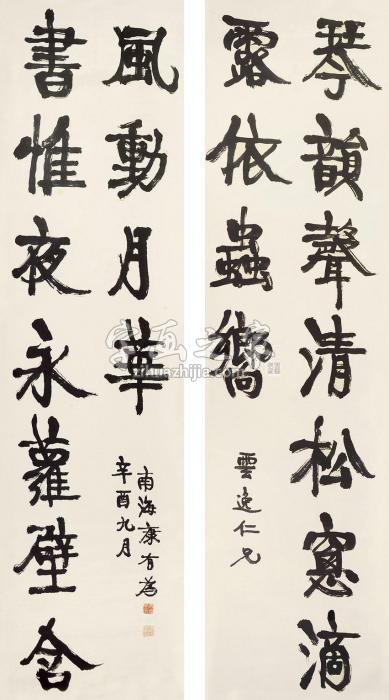 琴韻聲清松窓滴
露依蟲嚮
雲逸仁兄
書惟夜永蘿壁含
風動月華
辛酉九月
南海康有為
字画之家
zihuazhijia.com